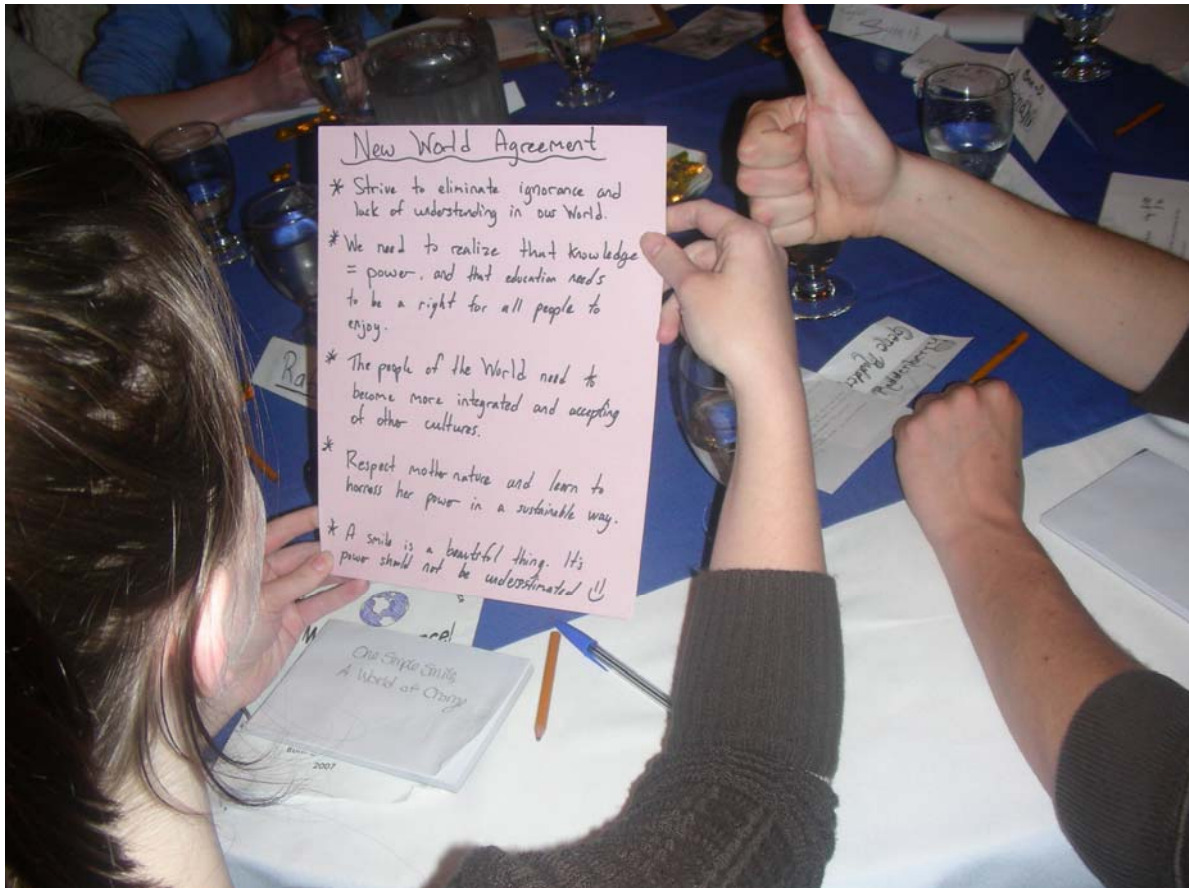 New World Agreement
* Strive to eliminate ignorance and
lack of understanding in our World.
* We need to realize that knowledge
= power, and that education needs
to be a right for all people to
enjoy.
* The people of the World need to
become more integrated and accepting
of other cultures.
* Respect mother nature and learn to
harness her power in a sustainable way.
* A smile is a beautiful thing. It's
power should not be underestimated
One Simple Smile,
A World of Change
2007